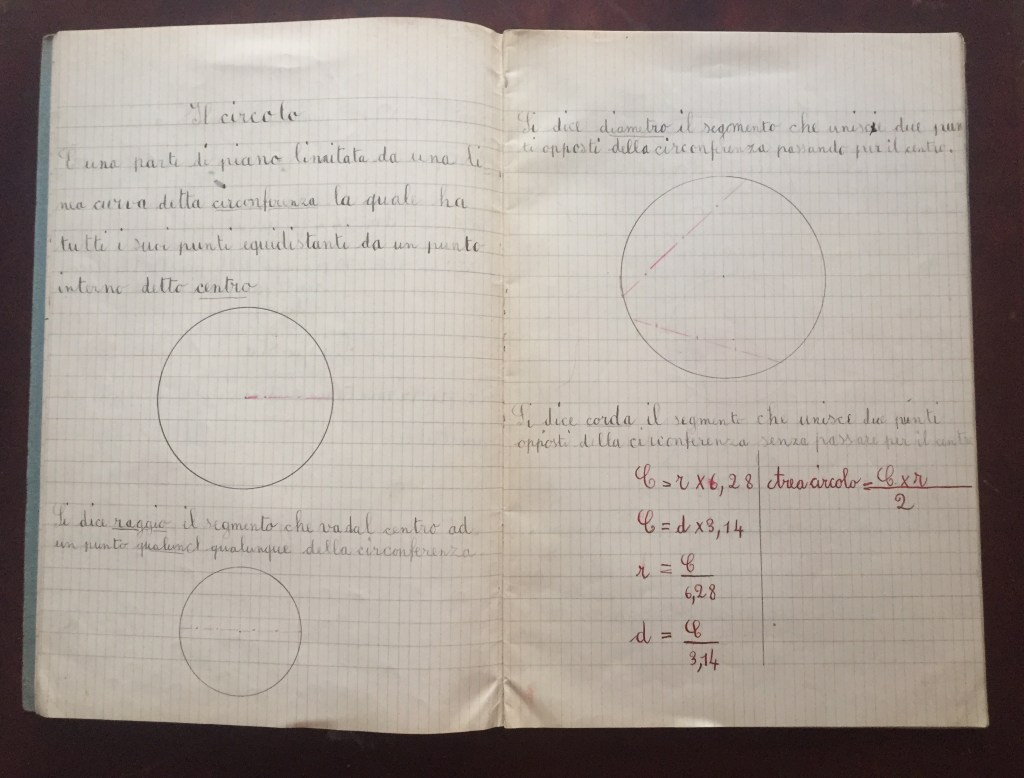 Il circolo
È una parte di piano limitata da una li
nea curva detta circonferenza la quale ha
tutti i suoi punti equidistanti da un punto
interno detto centro
Si dice raggio il segmento che va dal centro ad
un punto qualunque della circonferenza
Si dice diametro il segmento che unisce due pun
ti opposti della circonferenza passando per il centro.
Si dice corda il segmento che unisce due punti
opposti della circonferenza senza passare per il centro
C = r x 6,28
C = d x 3,14
r = C / 6,28
d = C / 3,14
Area circolo = C x r / 2